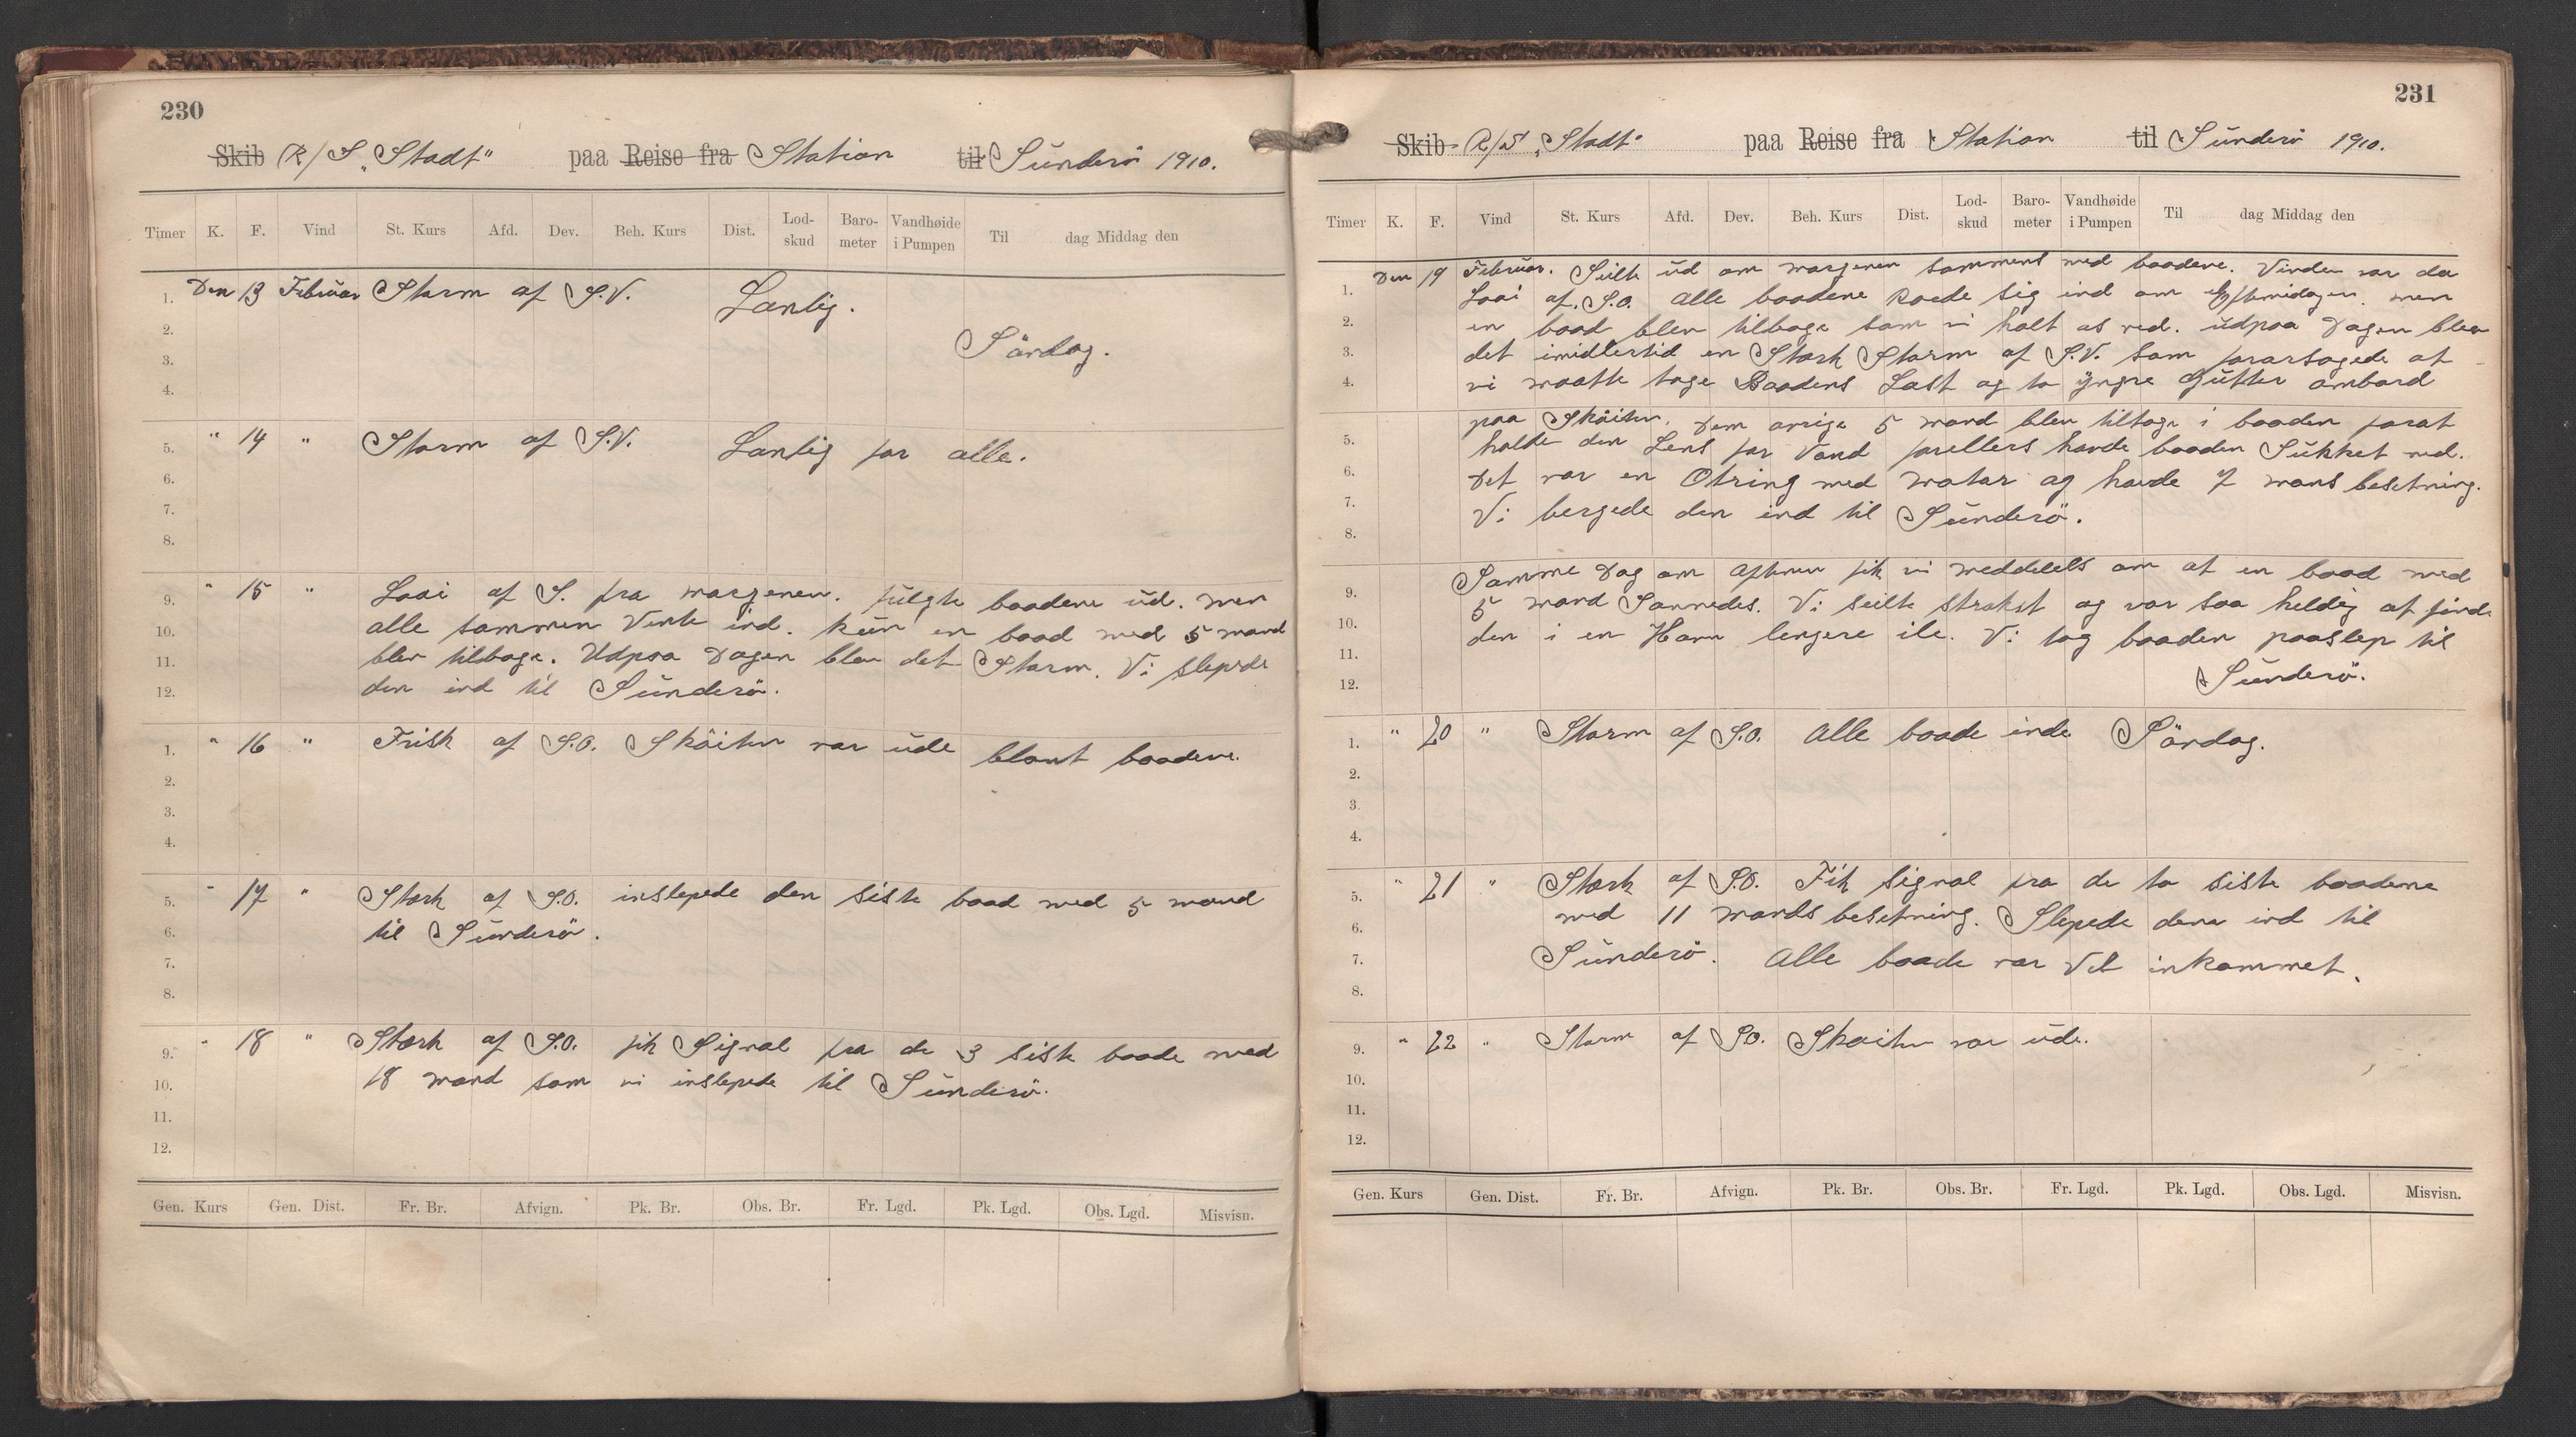 230
Skib R/S „Stadt" paa Reise fra Station til Sünderö 1910.
Timer K. F. Vind St. Kurs Afd. Dev. Beh. Kurs Dist. Lod-skud Baro-meter Vandhøide i Pumpen Til dag Middag den
Den 13 Februar Storm af S.V. Lanlig.
1.
2.
Söndag.
3.
4.
5. " 14 " Storm af S.V. Lanlig for alle.
6.
7.
8.
9. " 15 " Laai af S. fra morgenen. fülgte baadene üd. men
10. alle sammen Vente ind. kün en baad med 5 mand
11. blev tilbage. Udpaa Dagen blev det Storm. Vi slepede
12. den ind til Sünderö.
1. " 16 " Frisk af S.O. Sköiten var üde blant baadene.
2.
3.
4.
5. " 17 " Stærk af S.O. inslepede den siste baad med 5 mand
6. til Sünderö.
7.
8.
9. " 18 " Stærk af S.O. fik Signal fra de 3 siste baade med
10. 18 mand som vi inslepede til Sünderö.
11.
12.
Gen. Kurs Gen. Dist. Fr. Br. Afvign. Pk. Br. Obs. Br. Fr. Lgd. Pk. Lgd. Obs. Lgd. Misvisn.
231
Skib R/S „Stadt" paa Reise fra Station til Sünderö 1910.
Timer K. F. Vind St. Kurs Afd. Dev. Beh. Kurs Dist. Lod-skud Baro-meter Vandhøide i Pumpen Til dag Middag den
Den 19 Februar. Seilte üd om morgenen sammens med baadene. Vinden var da
1. Laai af. S.O. alle baadene Roede sig ind om eftermidagen. men
2. en baad blev tilbage som vi holt os ved. üdpaa Dagen blev
3. det imidlertid en Stærk Storm af S.V. som forarsagede at
4. vi maatte tage Baadens Last og to yngre Gütter ombord
paa Sköiten. Dem övrige 5 mand blev tilbage i baaden forat
5. holde den Lens for Vand forellers havde baaden Sükket ned.
6. Det var en Otring med motor og havde 7 mans besetning.
7. Vi bergede den ind til Sünderö.
8.
9. Samme Dag om aftenen fik vi meddelels om at en baad med
5 mand Savnedes. Vi seilte strakst og var saa heldig at finde
10. den i en Havn lengere ile. Vi tog baaden paaslep til
11.
12. Sünderö.
1. " 20 " Storm af S.O. alle baade inde Söndag.
2.
3.
4.
5. " 21 " Stærk af S.O. Fik signal fra de to siste baadene
6. med 11 mands besetning. Slepede dene ind til
7. Sünderö. alle baade var Vel inkommet.
8.
9. " 22 " Storm af S.O. Skoiten var üde.
10.
11.
12.
Gen. Kurs Gen. Dist. Fr. Br. Afvign. Pk. Br. Obs. Br. Fr. Lgd. Pk. Lgd. Obs. Lgd. Misvisn.